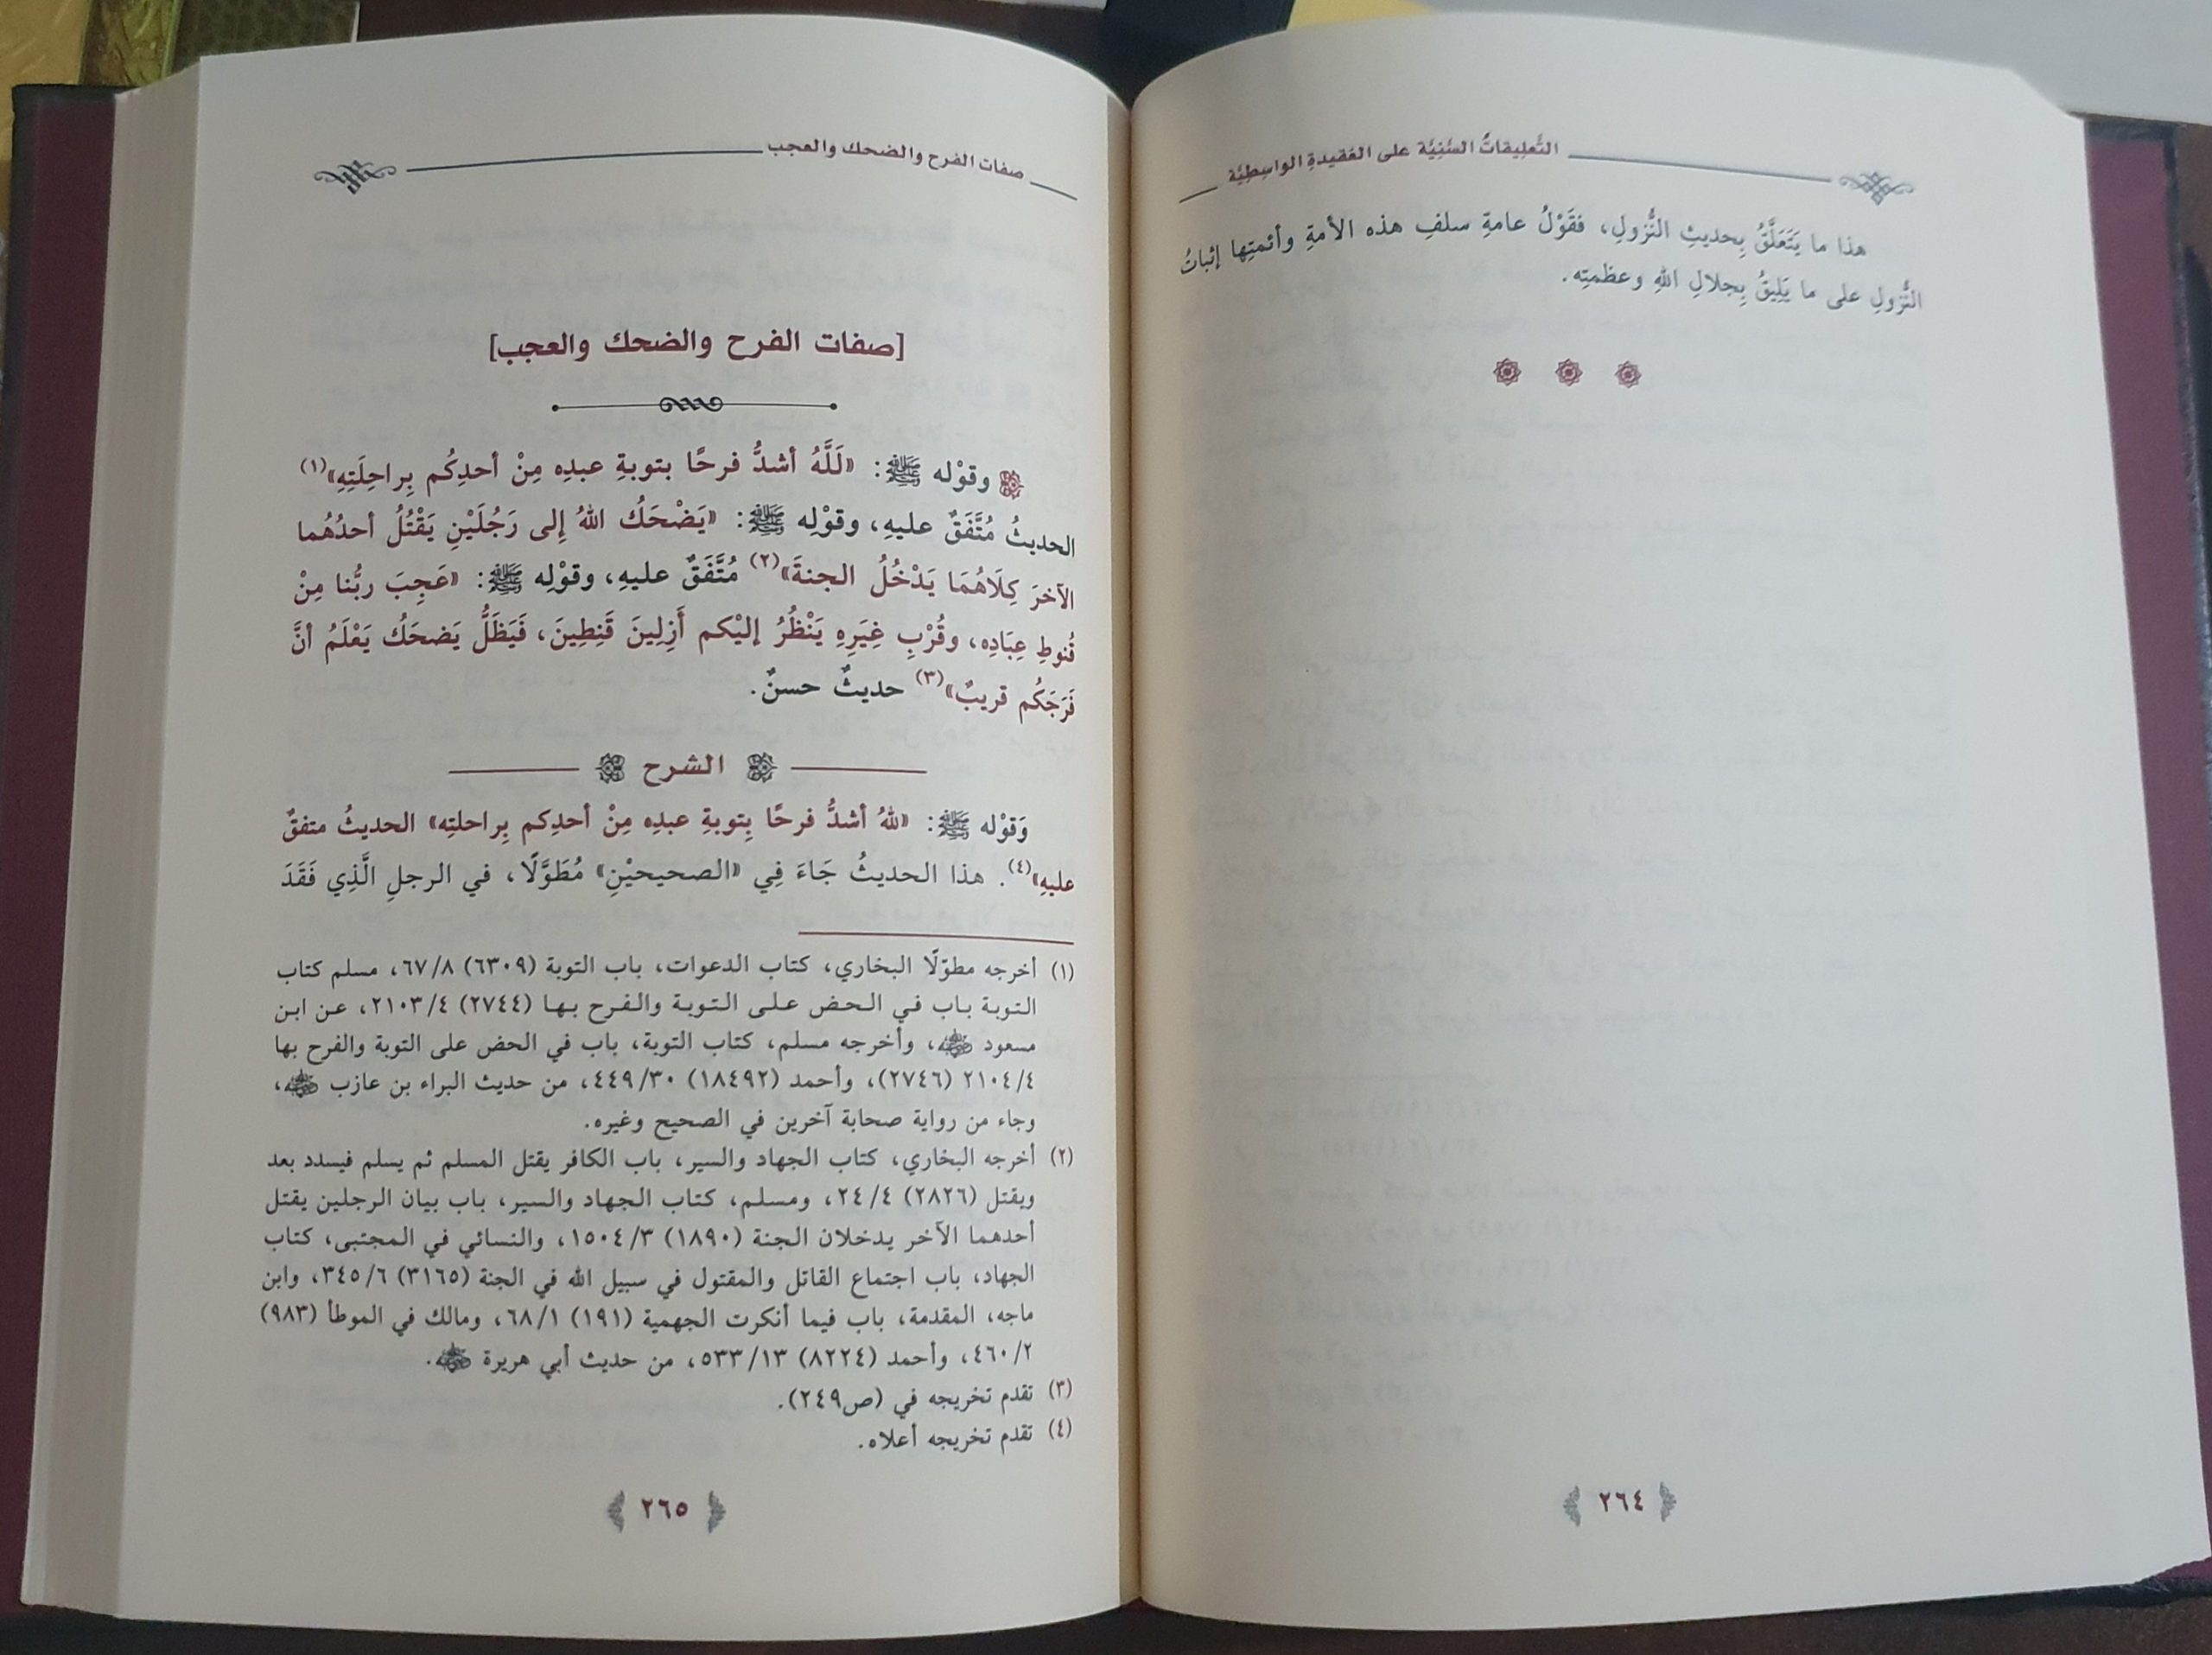 التَّعلِيقاتُ السَّنِيَّة على العَقِيدةِ الواسِطِيَّة
هذا ما يَتَعَلَّقُ بِحديثِ النُّزولِ، فقَوْلُ عامةِ سلفِ هذه الأمةِ وأئمتِها إثباتُ
النُّزولِ على ما يَلِيقُ بِجلالِ اللهِ وعظمتِه.
٢٦٤
صفات الفرح والضحك والعجب
[صفات الفرح والضحك والعجب]
وقوْله ﷺ: «لَلَّهُ أشدُّ فرحًا بتوبةِ عبدِه مِنْ أحدِكُم بِراحِلَتِهِ»(١)
الحديثُ مُتَّفَقٌ عليهِ، وقوْلِه ﷺ: «يَضْحَكُ اللهُ إِلى رَجُلَيْنِ يَقْتُلُ أحدُهُما
الآخرَ كِلَاهُمَا يَدْخُلُ الجنةَ»(٢) مُتَّفَقٌ عليهِ، وقوْلِه ﷺ: «عَجِبَ ربُّنا مِنْ
قُنوطِ عِبَادِه، وقُرْبِ غِيَرِهِ يَنْظُرُ إليْكم أَزِلِينَ قَنِطِينَ، فَيَظَلُّ يَضحَكُ يَعْلَمُ أنَّ
فَرَجَكُم قريبٌ»(٣) حديثٌ حسنٌ.
الشرح
وَقوْله ﷺ: «للهُ أشدُّ فرحًا بِتوبةِ عبدِه مِنْ أحدِكم بِراحلتِه» الحديثُ متفقٌ
عليهِ»(٤). هذا الحديثُ جَاءَ فِي «الصحيحيْنِ» مُطَوَّلًا، في الرجلِ الَّذِي فَقَدَ
(١) أخرجه مطوّلًا البخاري، كتاب الدعوات، باب التوبة (٦٣٠٩) ٦٧/٨، مسلم كتاب
التوبة باب في الحض على التوبة والفرح بها (٢٧٤٤) ٢١٠٣/٤، عن ابن
مسعود رضي الله عنه، وأخرجه مسلم، كتاب التوبة، باب في الحض على التوبة والفرح بها
٢١٠٤/٤ (٢٧٤٦)، وأحمد (١٨٤٩٢) ٤٤٩/٣٠، من حديث البراء بن عازب رضي الله عنه،
وجاء من رواية صحابة آخرين في الصحيح وغيره.
(٢) أخرجه البخاري، كتاب الجهاد والسير، باب الكافر يقتل المسلم ثم يسلم فيسدد بعد
ويقتل (٢٨٢٦) ٢٤/٤، ومسلم، كتاب الجهاد والسير، باب بيان الرجلين يقتل
أحدهما الآخر يدخلان الجنة (١٨٩٠) ١٥٠٤/٣، والنسائي في المجتبى، كتاب
الجهاد، باب اجتماع القاتل والمقتول في سبيل الله في الجنة (٣١٦٥) ٣٤٥/٦، وابن
ماجه، المقدمة، باب فيما أنكرت الجهمية (١٩١) ٦٨/١، ومالك في الموطأ (٩٨٣)
٤٦٠/٢، وأحمد (٨٢٢٤) ٥٣٣/١٣، من حديث أبي هريرة رضي الله عنه.
(٣) تقدم تخريجه في (ص٢٤٩).
(٤) تقدم تخريجه أعلاه.
٢٦٥